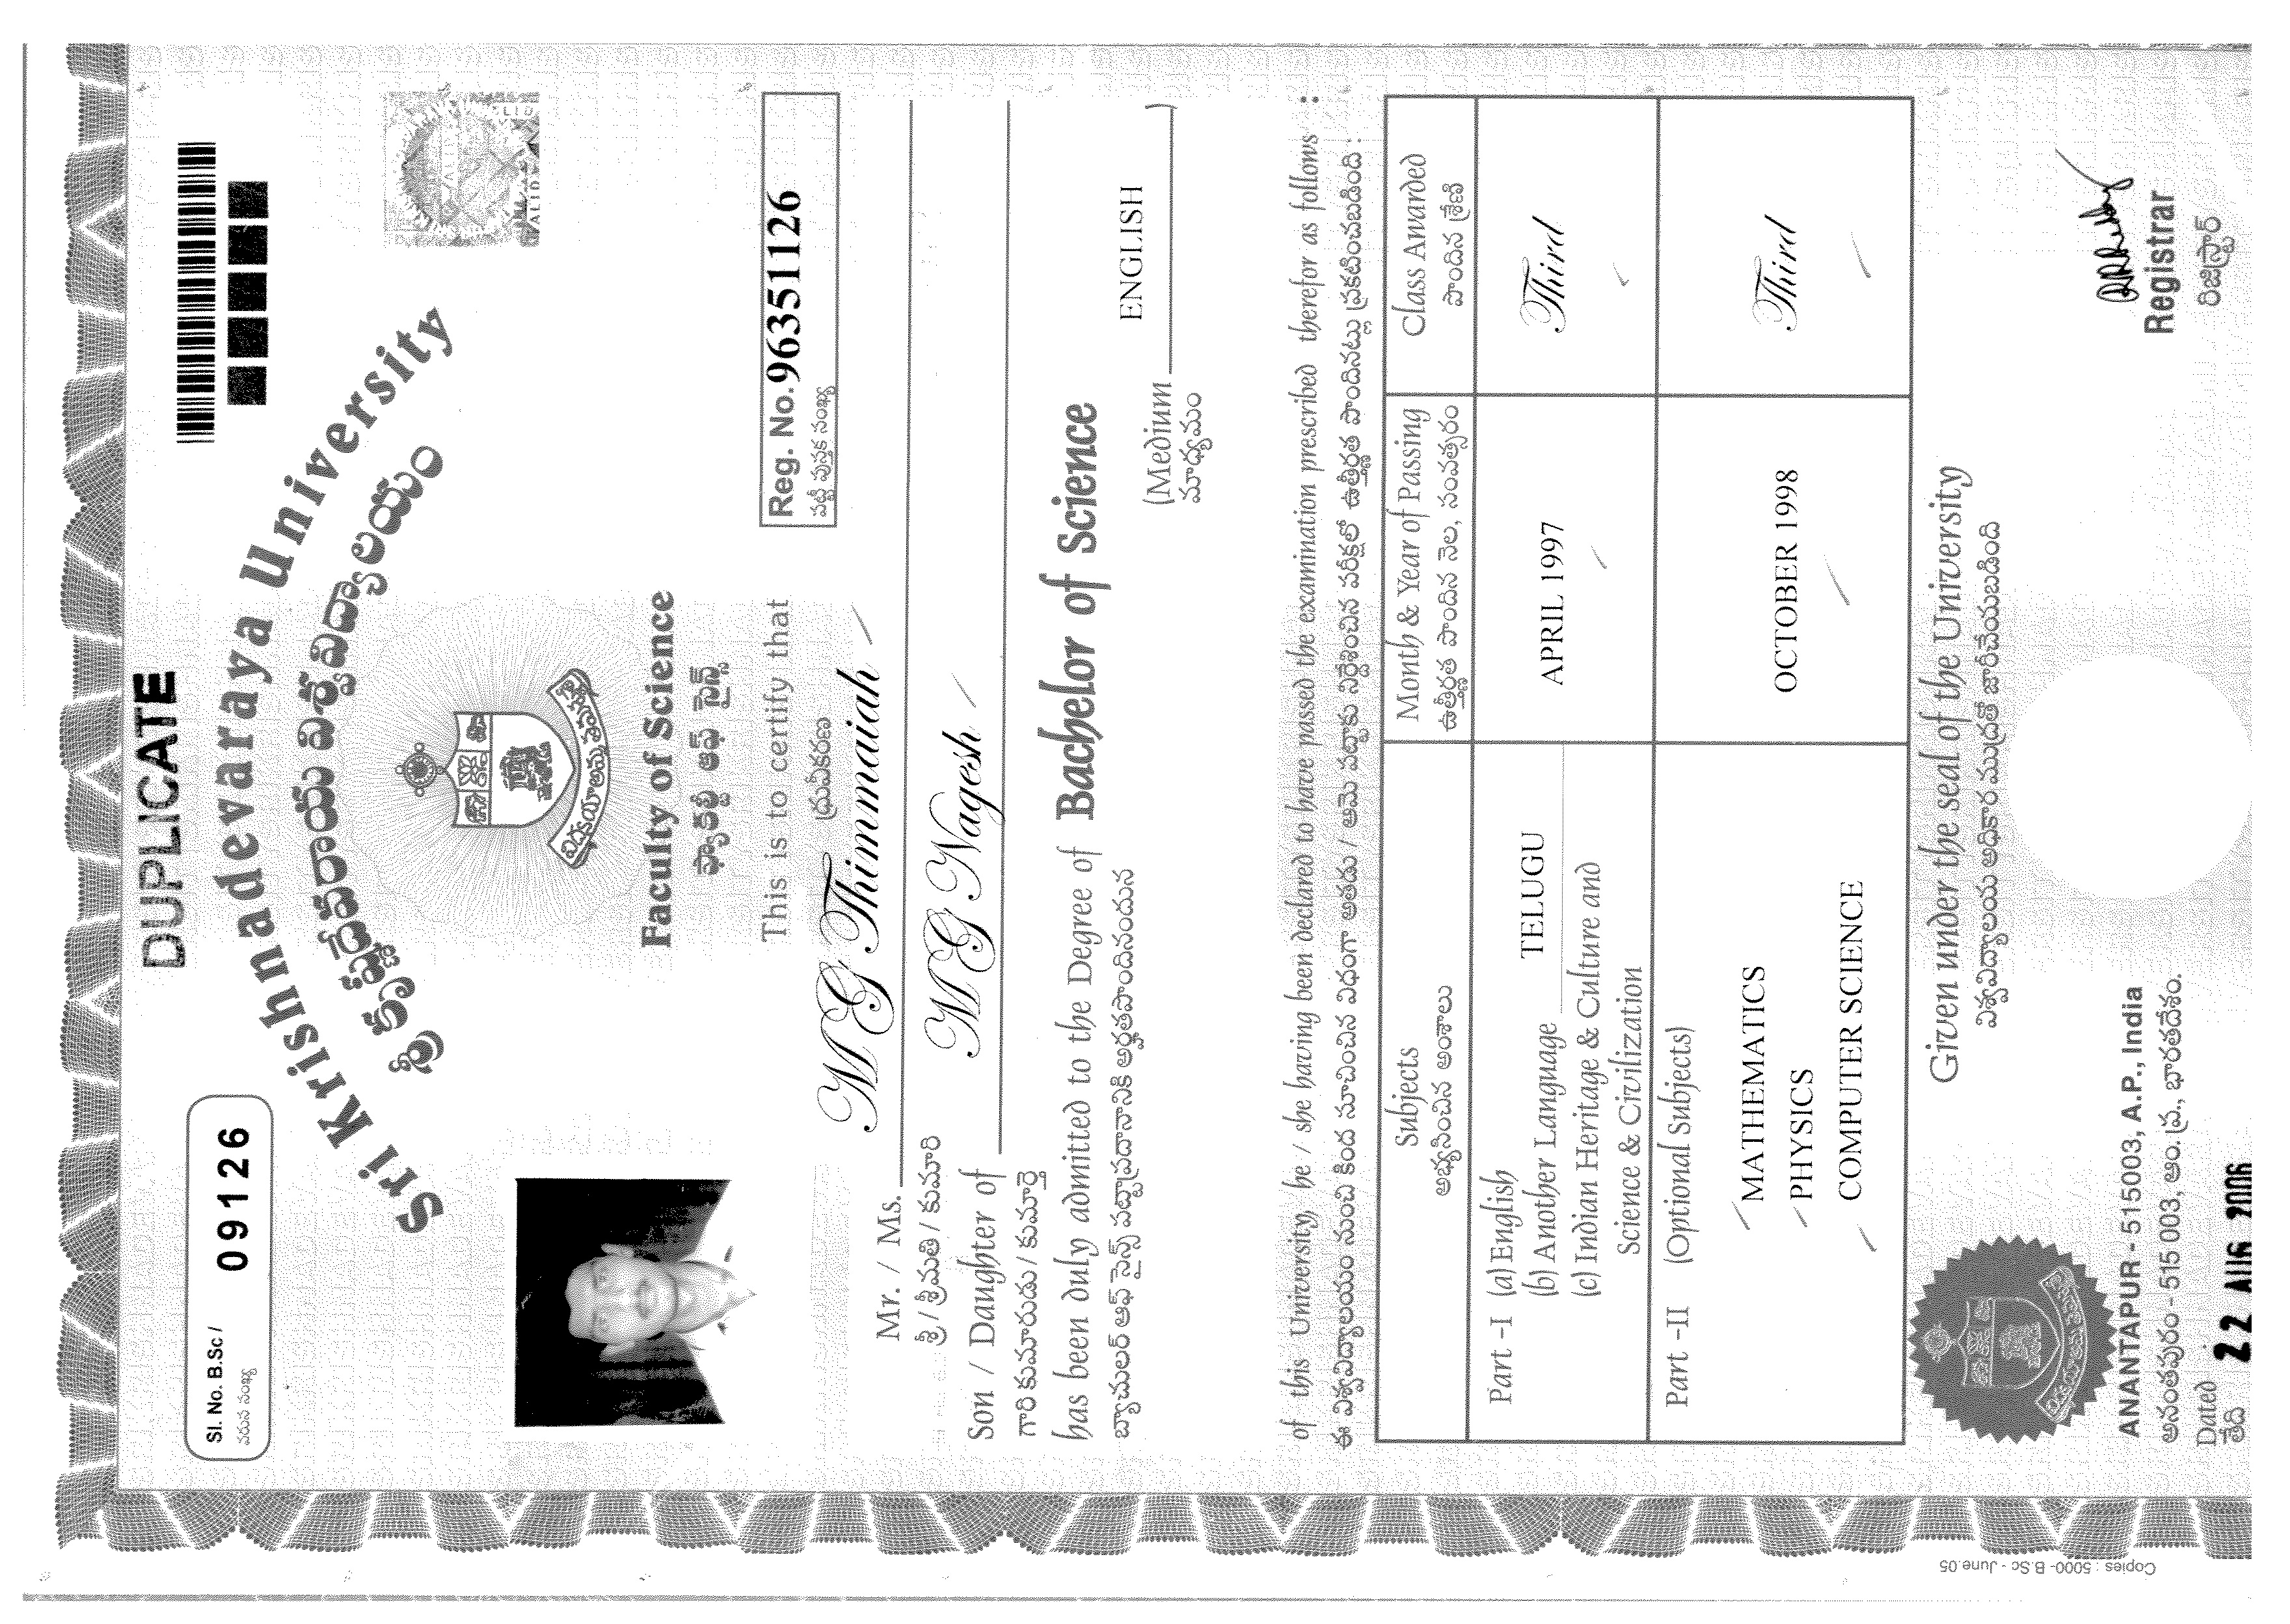 DUPLICATE
Sl. No. B.Sc / 09126
వరుస సంఖ్య
Sri Krishnadevaraya University
శ్రీ కృష్ణదేవరాయ విశ్వవిద్యాలయం
విద్యయా అమృతమశ్నుతే
Faculty of Science
ఫ్యాకల్టీ ఆఫ్ సైన్స్
Reg. No. 96351126
పట్టీ పుస్తక సంఖ్య
This is to certify that
ధ్రువీకరణ
Mr. / Ms. M G Thimmaiah
శ్రీ / శ్రీమతి / కుమారి
Son / Daughter of M G Nagesh
గారి కుమారుడు / కుమార్తె
has been duly admitted to the Degree of Bachelor of Science
బ్యాచులర్ ఆఫ్ సైన్స్ పట్టాప్రదానానికి అర్హతపొందినందున
(Medium ENGLISH )
మాధ్యమం
of this University, he / she having been declared to have passed the examination prescribed therefor as follows :
ఈ విశ్వవిద్యాలయం నుంచి కింద సూచించిన విధంగా అతడు / ఆమె పట్టాకు నిర్దేశించిన పరీక్షలో ఉత్తీర్ణత పొందినట్లు ప్రకటించబడింది :
Subjects Month & Year of Passing Class Awarded
అభ్యసించిన అంశాలు ఉత్తీర్ణత పొందిన నెల, సంవత్సరం పొందిన శ్రేణి
Part -I (a) English
(b) Another Language TELUGU APRIL 1997 Third
(c) Indian Heritage & Culture and
Science & Civilization
Part -II (Optional Subjects)
MATHEMATICS
PHYSICS OCTOBER 1998 Third
COMPUTER SCIENCE
Given under the seal of the University
విశ్వవిద్యాలయ అధికార ముద్రతో జారీచేయబడింది
ANANTAPUR - 515003, A.P., India
అనంతపురం - 515 003, ఆం. ప్ర., భారతదేశం.
Dated 22 AUG 2006
తేది
Registrar
రిజిస్ట్రార్
Copies : 5000- B.Sc - June.05